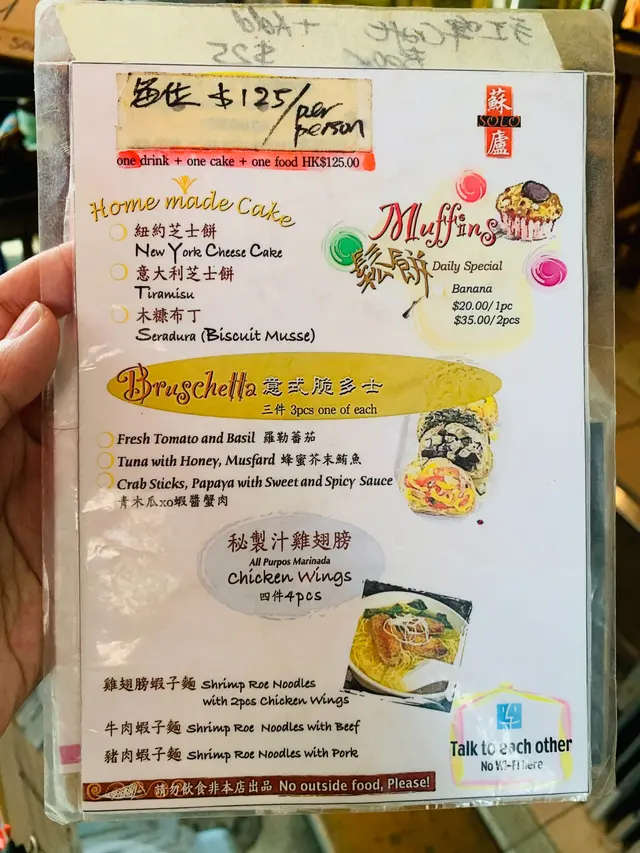 每位 $125/per person
蘇
SOLO
廬
one drink + one cake + one food HK$125.00
Home made Cake
紐約芝士餅
New York Cheese Cake
意大利芝士餅
Tiramisu
木糠布丁
Seradura (Biscuit Musse)
Muffins
鬆餅
Daily Special
Banana
$20.00/1pc
$35.00/2pcs
Bruschetta 意式脆多士
三件 3pcs one of each
Fresh Tomato and Basil 羅勒蕃茄
Tuna with Honey, Musfard 蜂蜜芥末鮪魚
Crab Sticks, Papaya with Sweet and Spicy Sauce
青木瓜xo蝦醬蟹肉
秘製汁雞翅膀
All Purpos Marinada
Chicken Wings
四件4pcs
雞翅膀蝦子麵 Shrimp Roe Noodles
with 2pcs Chicken Wings
牛肉蝦子麵 Shrimp Roe Noodles with Beef
豬肉蝦子麵 Shrimp Roe Noodles with Pork
Talk to each other
No Wi-Fi here
請勿飲食非本店出品 No outside food, Please!